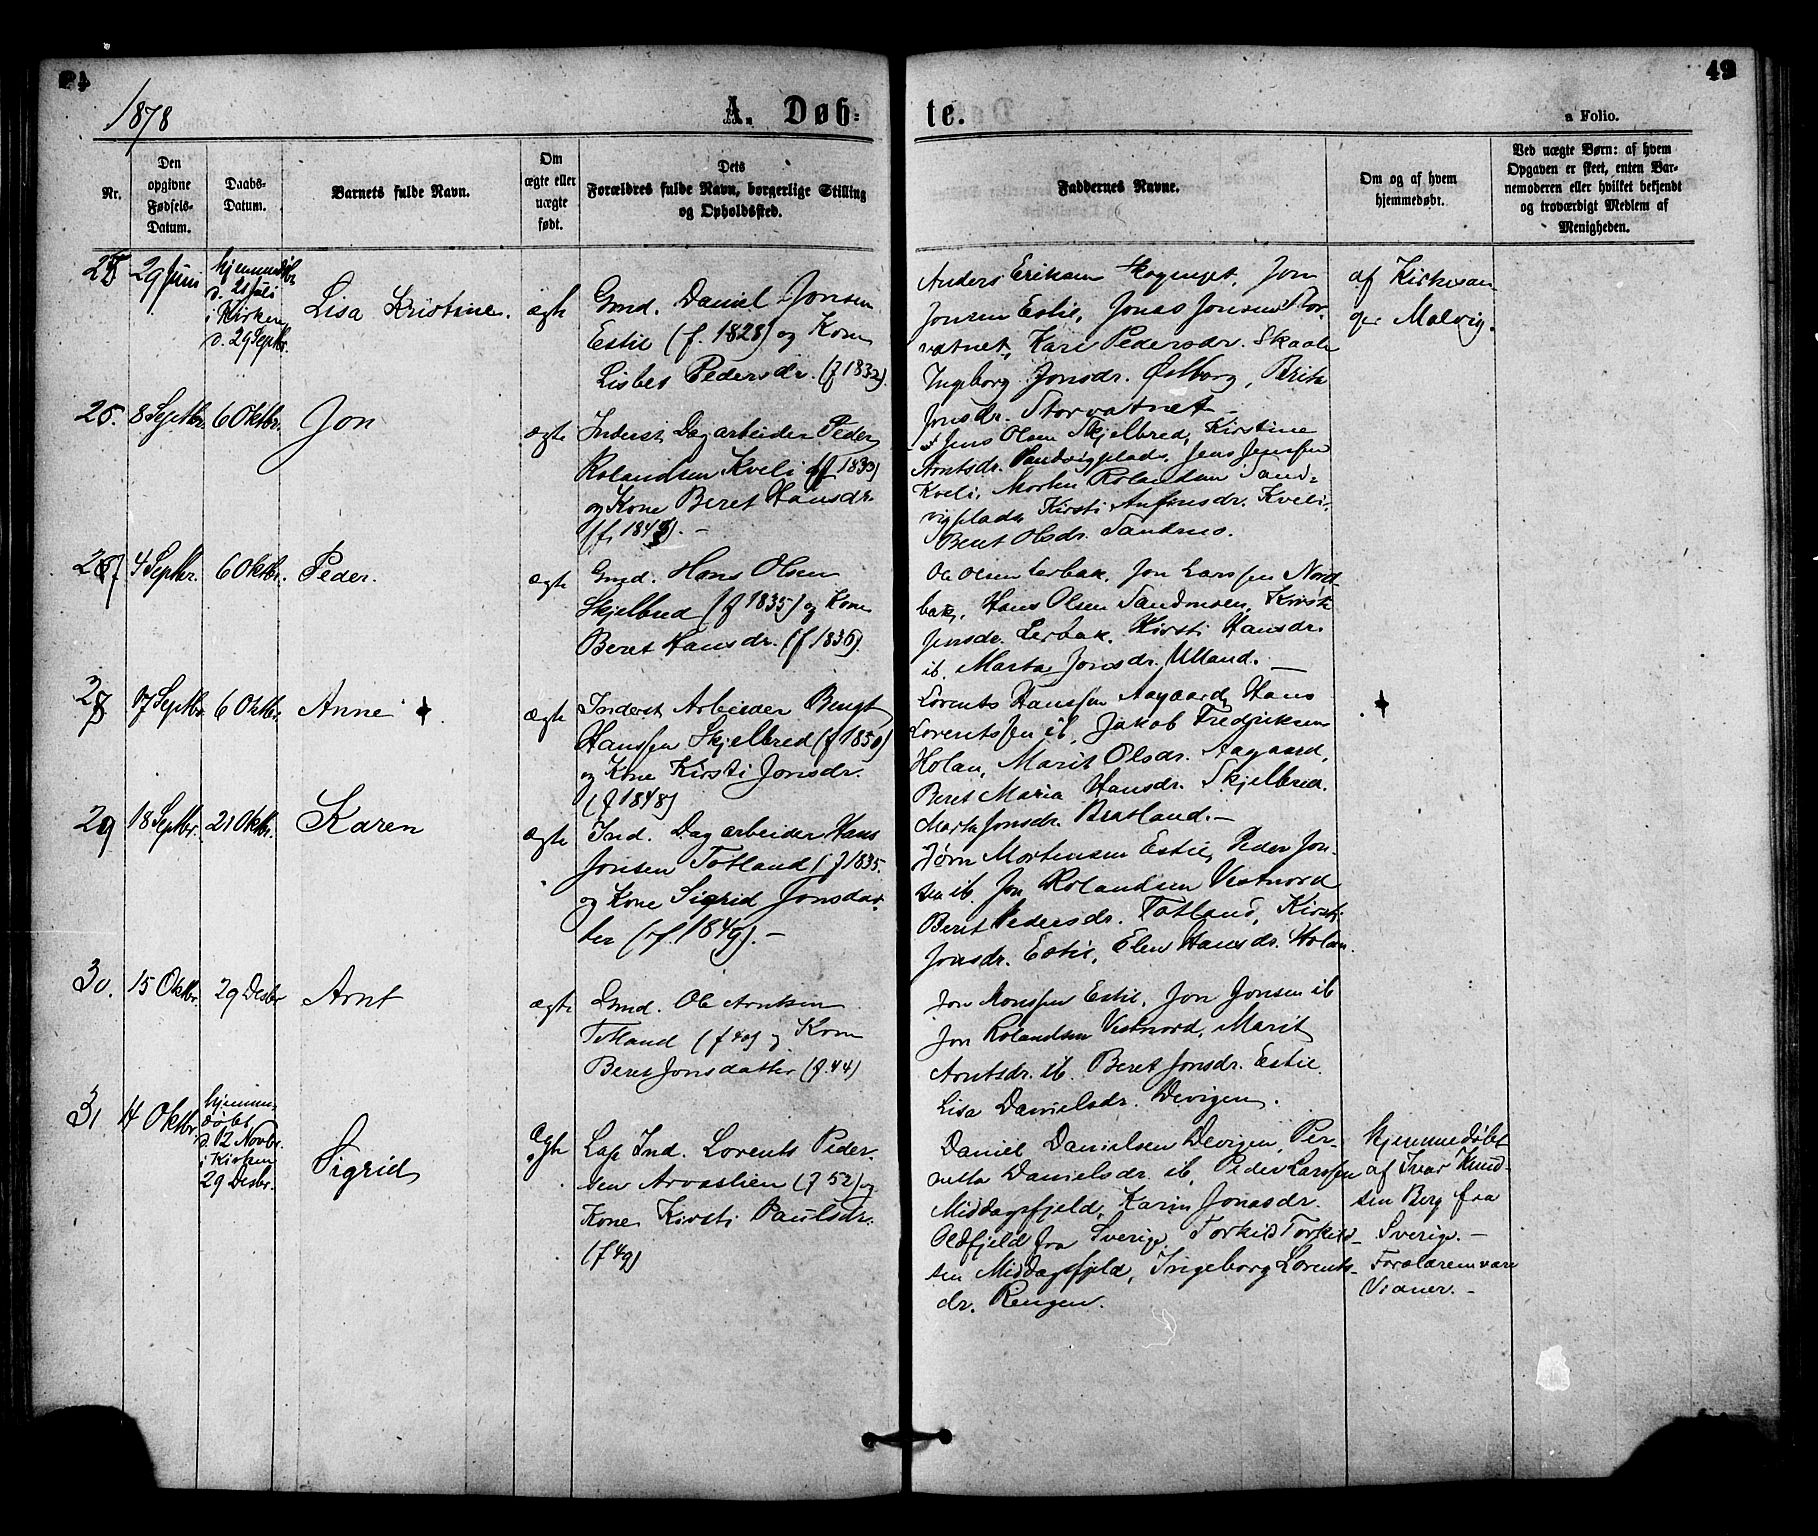 1878
A. Døb-
te.
49
a Folio.
Nr.
Den
opgivne
Fødsels-
Datum.
Daabs-
Datum.
Barnets fulde Navn.
Om
ægte eller
uægte
født.
Dets
Forældres fulde Navn, borgerlige Stilling
og Opholdssted.
Faddernes Navne.
Om og af hvem
hjemmedøbt.
Ved uægte Børn: af hvem
Opgaven er skeet, enten Bar-
nemoderen eller hvilket bekjendt
og troværdigt Medlem af
Menigheden.
25
29 Juni
hjemmedøbt
d. 21 Juli
i Kirken
d. 29 Septbr.
Lisa Kristine.
ægte
Gmd. Daniel Jonsen
Estil (f. 1828) og Kone
Lisbet Pedersdr. (f 1832).
Anders Eriksen Jon
Jonsen Estil, Jonas Jonsen Stor-
vatnet, Kari Pedersdr. Skaale
Ingeborg Jonsdr. Østborg, Berit
Jonsdr. Storvatnet
af Kirkesan-
ger Malvig.
26.
8 Septbr.
6 Oktbr.
Jon
ægte
Inderst, Dagarbeider Peder
Rolandsen Kveli (f 1833)
og Kone Beret Hansdr.
(f. 1849). -
Jens Olsen Skjelbred, Kirstine
Arntsdr. Sandvigplads, Jens Jensen
Kveli, Morten Rolandsen Sand-
vigplads Kirsti Anfinsdr. Kveli,
Beret Olsdr. Sandmo.
27
4 Septbr.
6 Oktbr.
Peder.
ægte
Gmd. Hans Olsen
Skjelbred (f 1835) og Kone
Beret Hansdr. (f 1836).
Ole Olsen Lerbak, Jon Larssen Nord-
bak, Hans Olsen Sandmoen, Kirsti
Jensdr. Lerbak, Kirsti Hansdr.
ib. Marta Jonsdr. Ulland. -
28
17 Septbr.
6 Oktbr.
Anne
ægte
Inderst Arbeider Bengt
Hanssen Skjelbred (f 1850)
og Kone Kirsti Jonsdr.
(f 1848)
Lorents Hanssen Aagaard, Hans
Lorentssen ib, Jakob Fredriksen
Holan, Marit Olsdr. Aagaard,
Beret Maria Hansdr. Skjelbred.
Marta Jonsdr. Bratland. -
29
18 Septbr.
21 Oktbr.
Karen
ægte
Ind. Dagarbeider Hans
Jonsen Totland (f 1835.
og Kone Sigrid Jonsdat-
ter (f. 1849). -
Jørn Mortensen Estil, Peder Jon-
sen ib. Jon Rolandsen Vestnord
Beret Pedersdr. Totland, Kirsti
Jonsdr. Estil, Elen Hansdr. Holan.
30.
15 Oktbr.
29 Desbr
Arnt
ægte
Gmd. Ole Arntsen
Totland (f 40) og Kone
Beret Jonsdatter (f. 44)
Jon Monssen Estil, Jon Jonsen ib
Jon Rolandsen Vestnord, Marit
Arntsdr. ib. Beret Jonsdr. Estil.
Lisa Danielsdr. Devigen.
31
14 Oktbr.
hjemme-
døbt
d. 12 Novbr.
i Kirken
29 Desbr.
Sigrid
ægte
Lap Ind. Lorents Peder-
sen Arvaslien (f 52) og
Kone Kirsti Paulsdr.
(f 49)
Daniel Danielsen Devigen, Per-
nella Danielsdr. ib, Peder Larssen
Middagsfjeld, Karin Jonasdr.
Oldfjeld fra Sverige, Torkild Torkild-
sen Middagsfjeld, Ingeborg Lorents-
dr. Rengen.
hjemmedøbt
af Ivar Knud-
sen Berg fra
Sverige. -
Forældrene vare